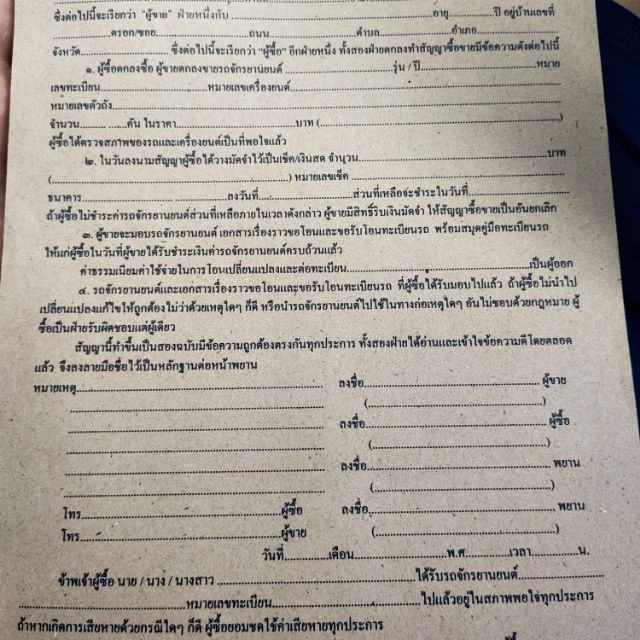 ซึ่งต่อไปนี้จะเรียกว่า "ผู้ขาย" ฝ่ายหนึ่งกับ..............................อายุ..........ปี อยู่บ้านเลขที่
..............ตรอก/ซอย....................ถนน....................ตำบล....................อำเภอ....................
จังหวัด.................... ซึ่งต่อไปนี้จะเรียกว่า "ผู้ซื้อ" อีกฝ่ายหนึ่ง ทั้งสองฝ่ายตกลงทำสัญญาซื้อขายมีข้อความดังต่อไปนี้
๑. ผู้ซื้อตกลงซื้อ ผู้ขายตกลงขายรถจักรยานยนต์ ....................รุ่น / ปี....................หมาย
เลขทะเบียน....................หมายเลขเครื่องยนต์....................
หมายเลขตัวถัง....................
จำนวน..........คัน ในราคา....................บาท (....................)
ผู้ซื้อได้ตรวจสภาพของรถและเครื่องยนต์เป็นที่พอใจแล้ว
๒. ในวันลงนามสัญญาผู้ซื้อได้วางมัดจำไว้เป็นเช็ค/เงินสด จำนวน....................บาท
(....................) หมายเลขเช็ค ....................
ธนาคาร....................ลงวันที่....................ส่วนที่เหลือจะชำระในวันที่....................
ถ้าผู้ซื้อไม่ชำระค่ารถจักรยานยนต์ส่วนที่เหลือภายในเวลาดังกล่าว ผู้ขายมีสิทธิ์ริบเงินมัดจำ ให้สัญญาซื้อขายเป็นอันยกเลิก
๓. ผู้ขายจะมอบรถจักรยานยนต์ เอกสารเรื่องราวขอโอนและขอรับโอนทะเบียนรถ พร้อมสมุดคู่มือทะเบียนรถ
ให้แก่ผู้ซื้อในวันที่ผู้ขายได้รับชำระเงินค่ารถจักรยานยนต์ครบถ้วนแล้ว
ค่าธรรมเนียมค่าใช้จ่ายในการโอนเปลี่ยนแปลงและต่อทะเบียน....................เป็นผู้ออก
๔. รถจักรยานยนต์และเอกสารเรื่องราวขอโอนและขอรับโอนทะเบียนรถ ที่ผู้ซื้อได้รับมอบไปแล้ว ถ้าผู้ซื้อไม่นำไป
เปลี่ยนแปลงแก้ไขให้ถูกต้องไม่ว่าด้วยเหตุใดๆ ก็ดี หรือนำรถจักรยานยนต์ไปใช้ในทางก่อเหตุใดๆ อันไม่ชอบด้วยกฎหมาย ผู้
ซื้อเป็นฝ่ายรับผิดชอบแต่ผู้เดียว
สัญญานี้ทำขึ้นเป็นสองฉบับมีข้อความถูกต้องตรงกันทุกประการ ทั้งสองฝ่ายได้อ่านและเข้าใจข้อความดีโดยตลอด
แล้ว จึงลงลายมือชื่อไว้เป็นหลักฐานต่อหน้าพยาน
หมายเหตุ.................... ลงชื่อ....................ผู้ขาย
(....................)
ลงชื่อ....................ผู้ซื้อ
(....................)
ลงชื่อ....................พยาน
(....................)
โทร....................ผู้ซื้อ ลงชื่อ....................พยาน
โทร....................ผู้ขาย (....................)
วันที่..........เดือน....................พ.ศ...........เวลา..........น.
ข้าพเจ้าผู้ซื้อ นาย / นาง / นางสาว ....................ได้รับรถจักรยานยนต์....................
....................หมายเลขทะเบียน....................ไปแล้วอยู่ในสภาพพอใจทุกประการ
ถ้าหากเกิดการเสียหายด้วยกรณีใดๆ ก็ดี ผู้ซื้อยอมชดใช้ค่าเสียหายทุกประการ